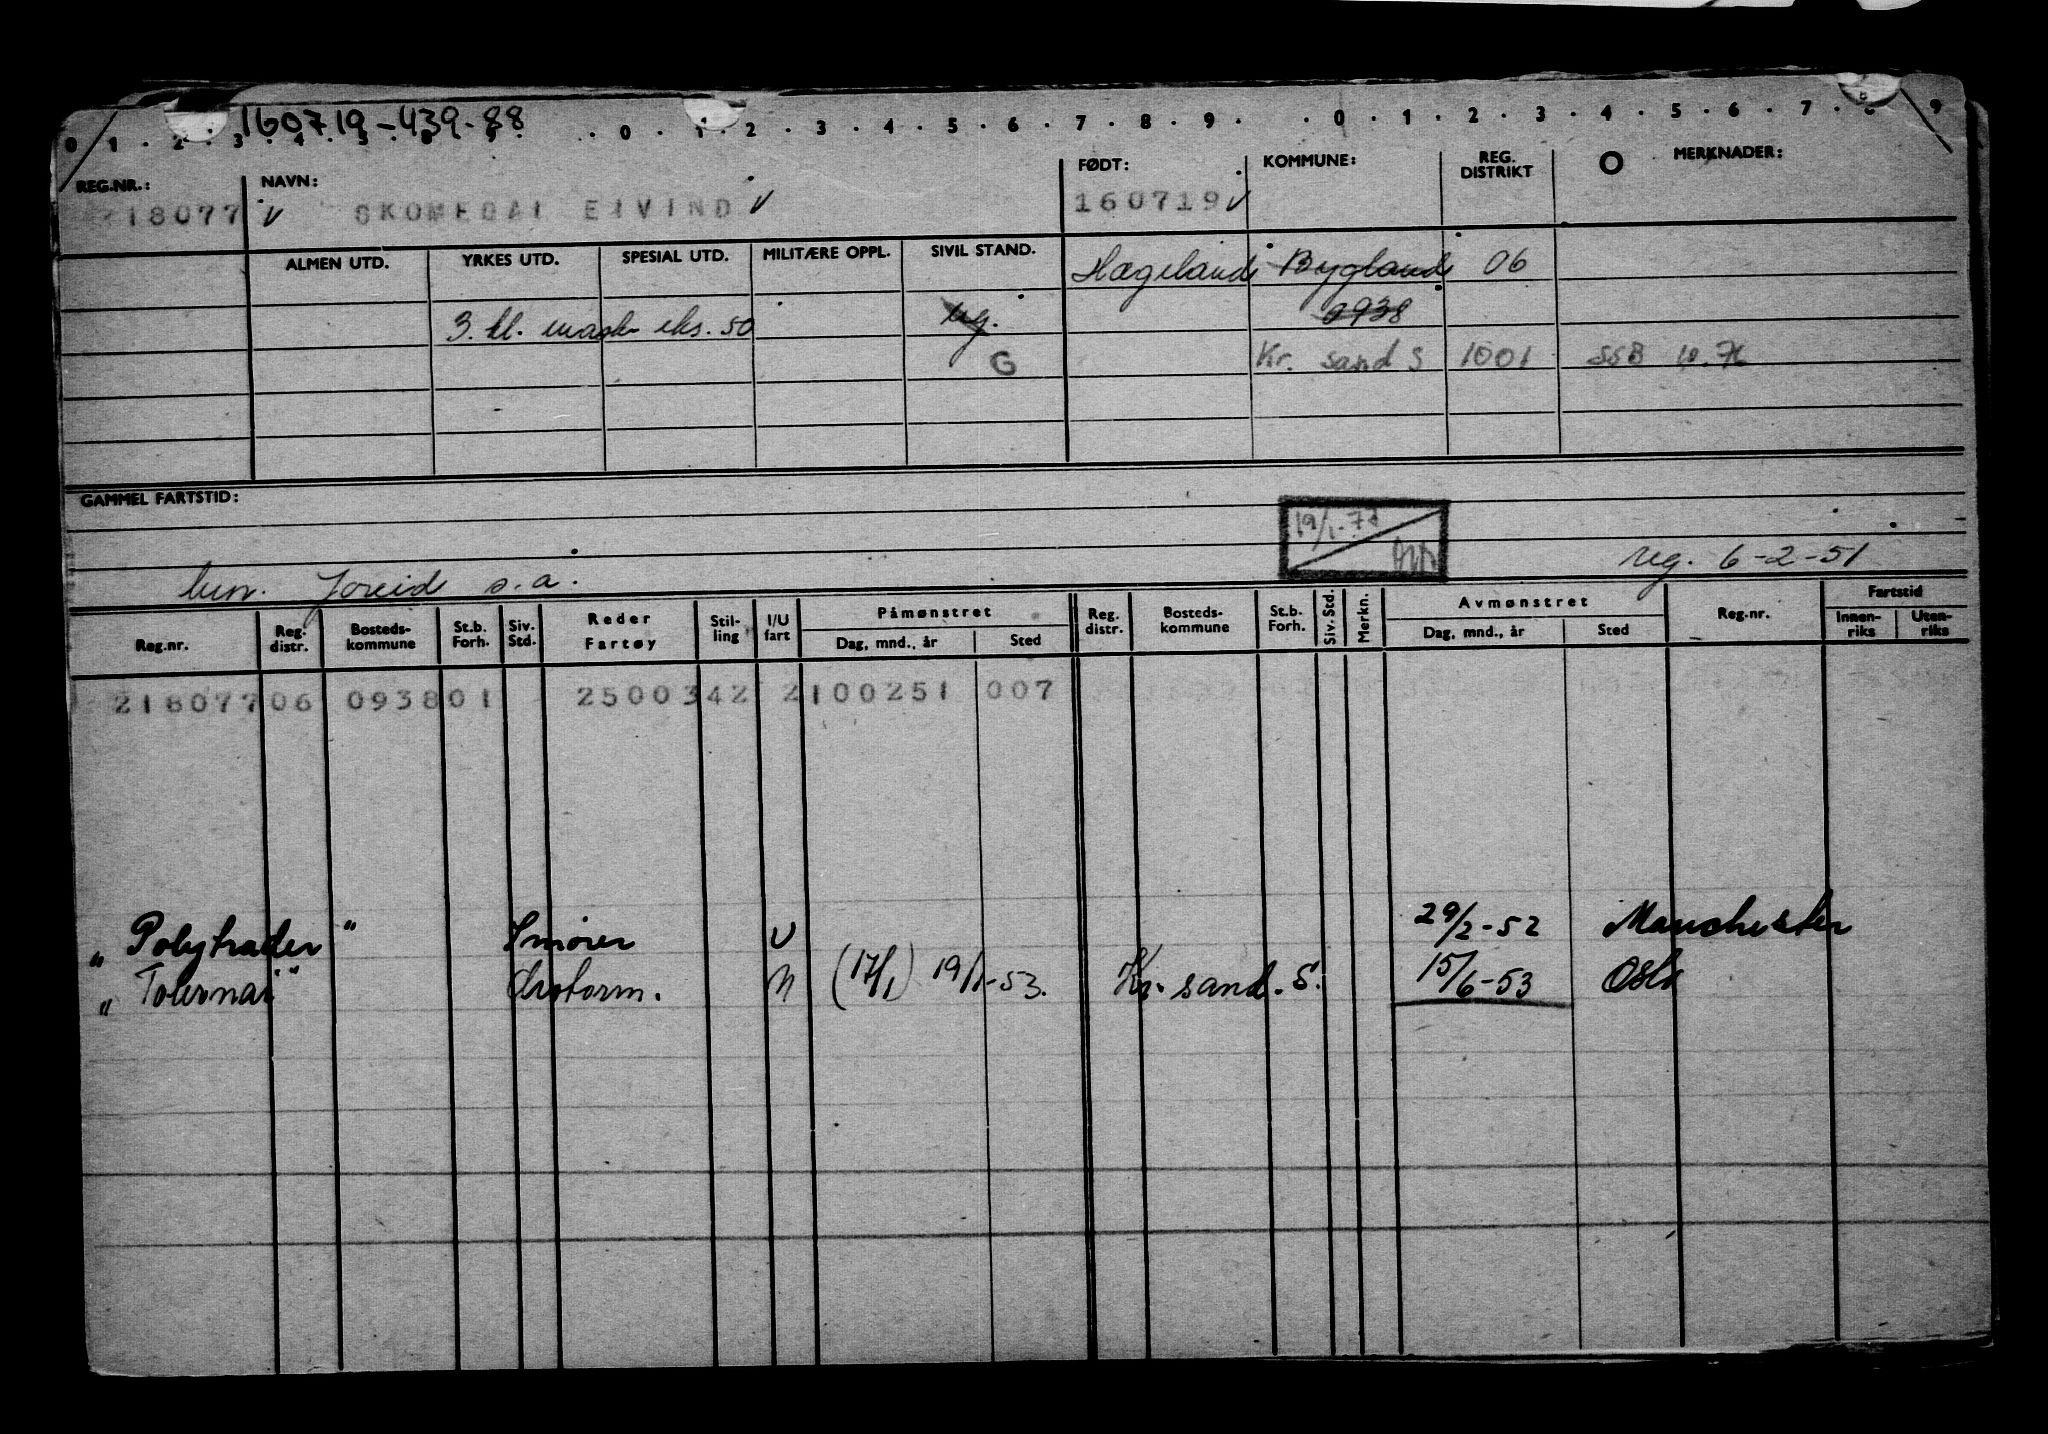 160719-439-88
0 . 1 . 2 . 3 . 4 . 5 . 6 . 7 . . 0 . 1 . 2 . 3 . 4 . 5 . 6 . 7 . 8 . 9 . . 0 . 1 . 2 . 3 . 4 . 5 . 6 . 7 . 8 . 9
REG.NR.: NAVN: FØDT: KOMMUNE: REG. DISTRIKT O MERKNADER:
218077 SKOMEDAL EIVIND 160719
ALMEN UTD. YRKES UTD. SPESIAL UTD. MILITÆRE OPPL. SIVIL STAND. Hægeland Bygland 06
3. kl. mask eks. 50 ug. 0938
G Kr. sand S 1001 SSB
GAMMEL FARTSTID:
19/1-72
s.a. reg. 6-2-51
Reg.nr. Reg. distr. Bosteds- kommune St.b. Forh. Siv. Std. Reder Fartøy Stil- ling I/U fart Påmønstret Dag, mnd., år Sted Reg. distr. Bosteds- kommune St.b. Forh. Siv. Std. Merkn. Avmønstret Dag, mnd., år Sted Reg.nr. Fartstid Innen- riks Uten- riks
218077 06 0938 01 2500342 2 100251 007
" Polytrader " Smører U 29/2-52 Manchester
" Tovernai " (17/1) 19/1-53. Kr. sand. S. 15/6-53 Oslo